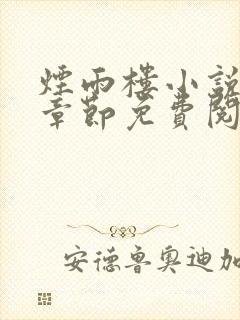 煙雨樓小說
章節免費閱
安德魯奧迪加